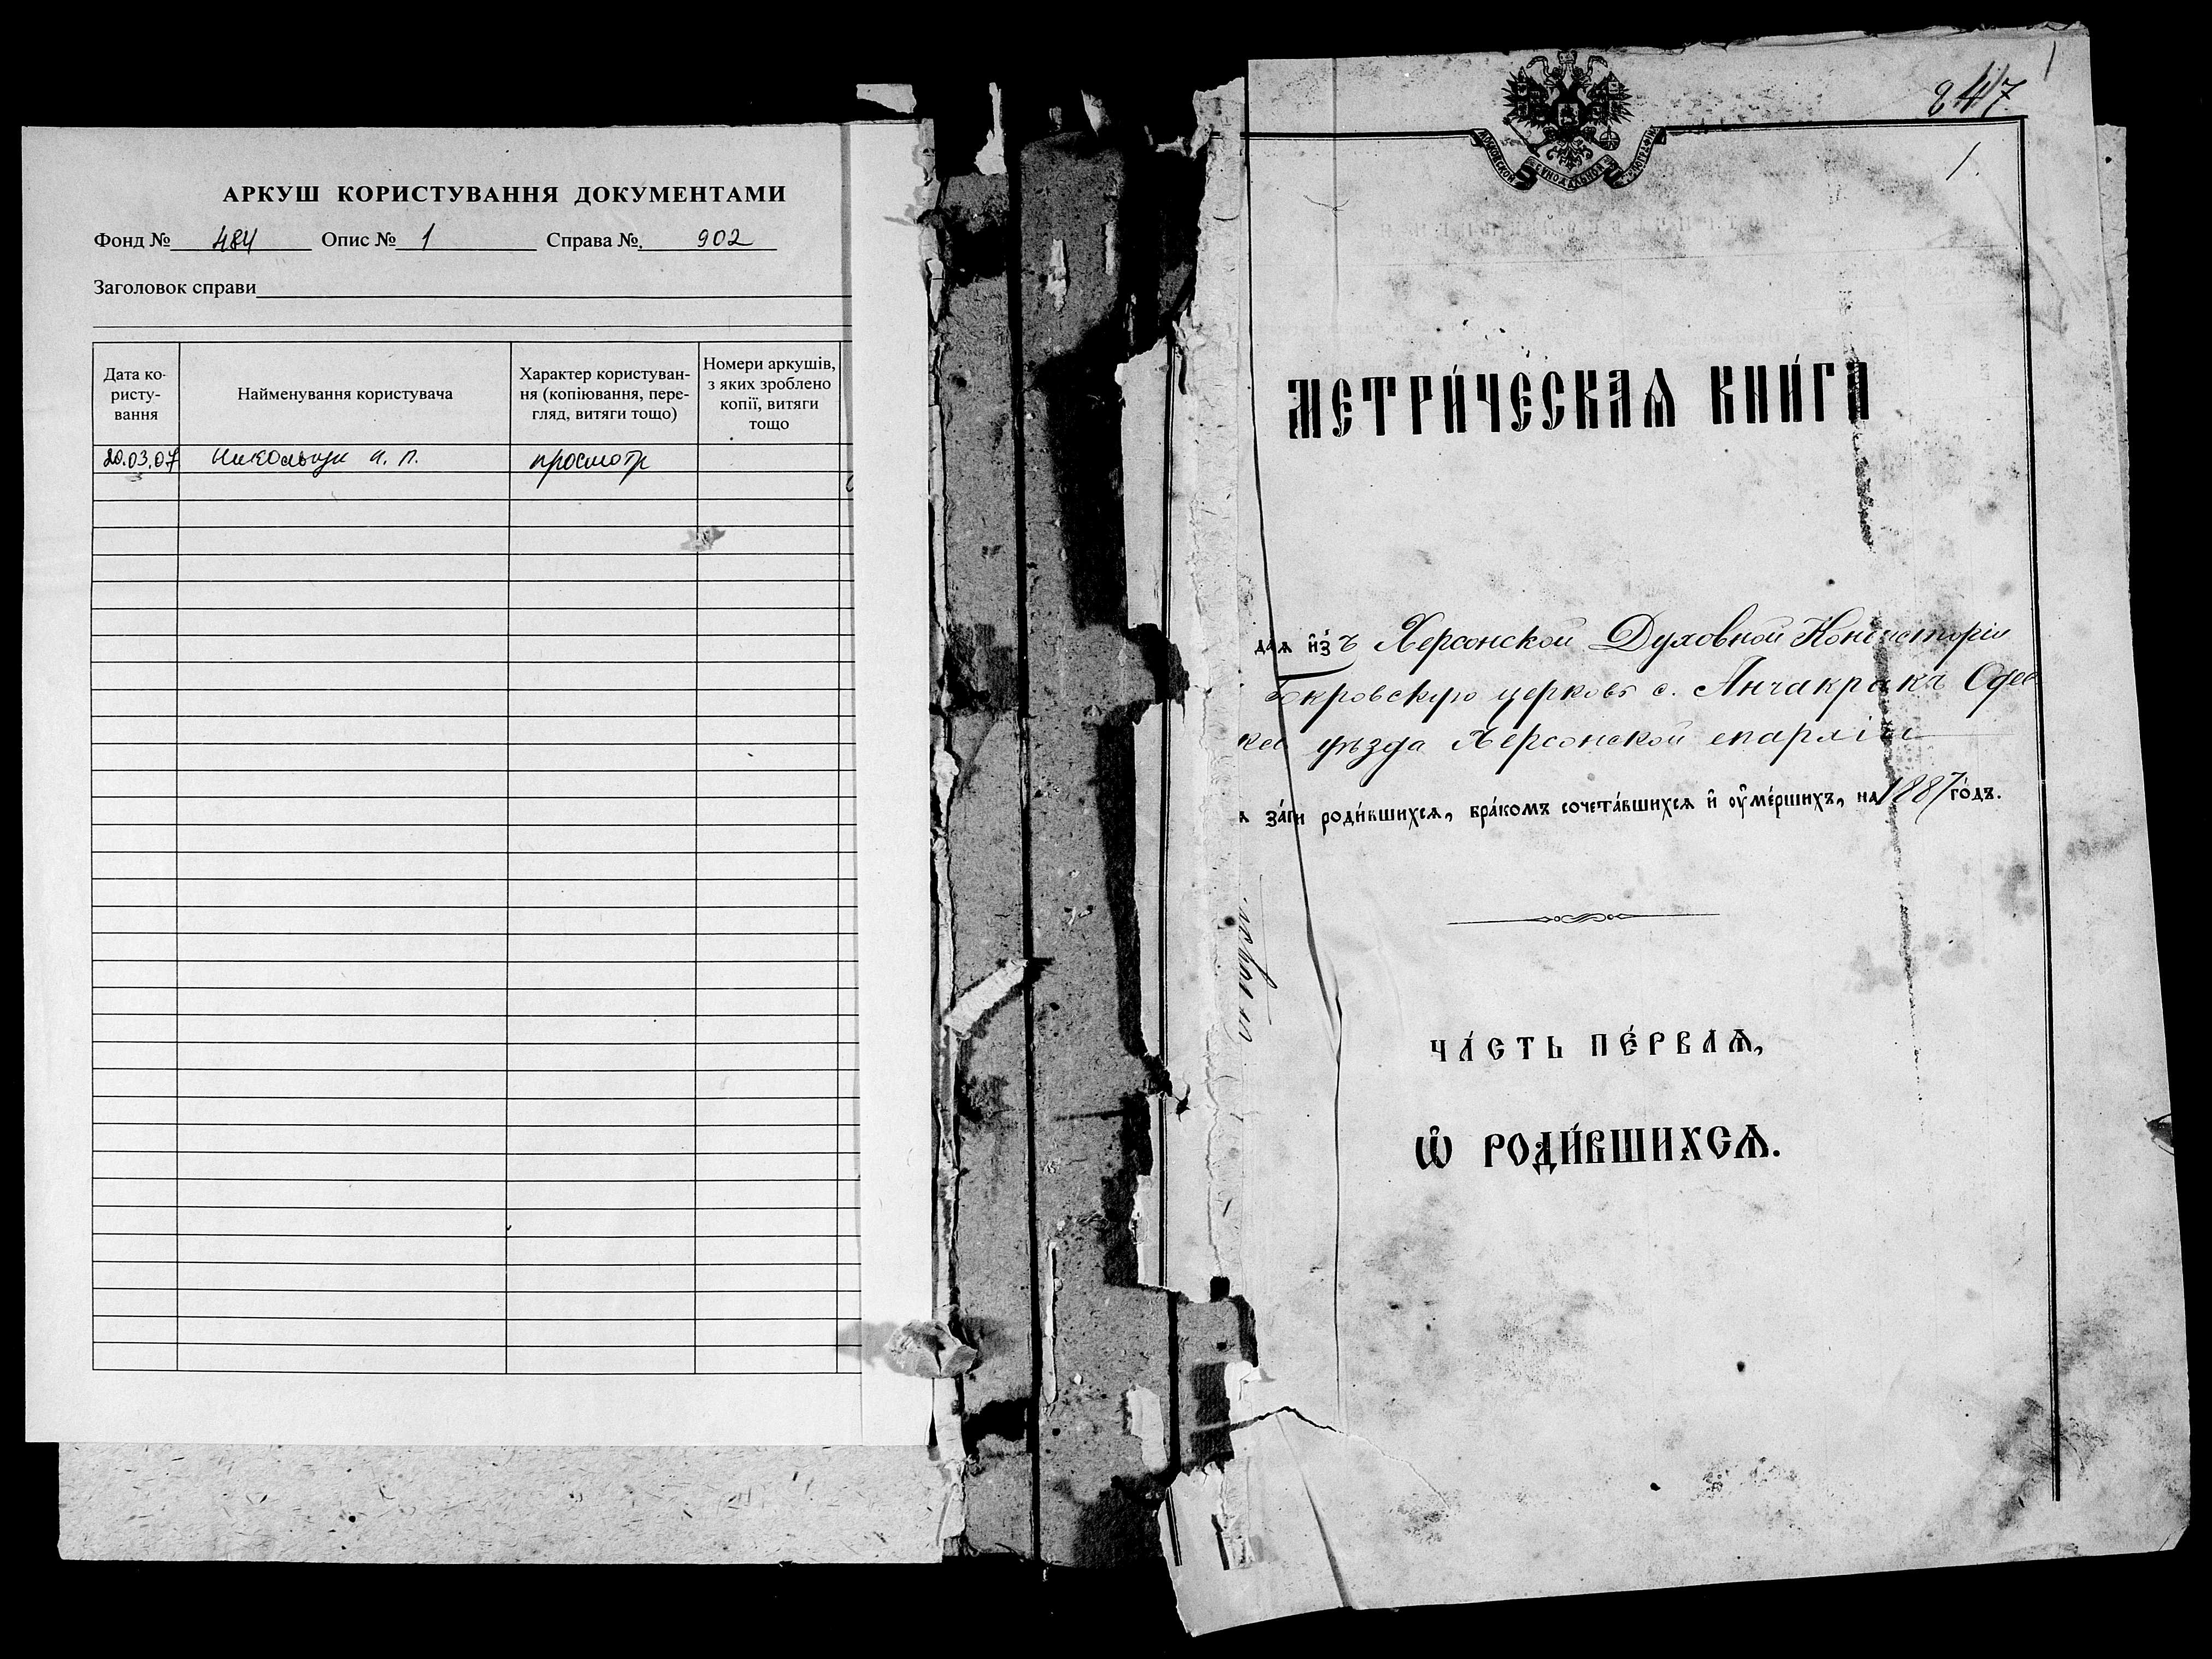 АРКУШ КОРИСТУВАННЯ ДОКУМЕНТАМИ
Фонд № 484 Опис № 1 Справа № 902
Заголовок справи
Дата ко-
ристу-
вання
Найменування користувача
Характер користуван-
ня (копіювання, пере-
гляд, витяги тощо)
Номери аркушів,
з яких зроблено
копії, витяги
тощо
20.03.07 просмотр
1
247
МОСКОВСКОЙ СѴНОДАЛЬНОЙ ТѴПОГРАФІИ
1.
МЕТРИ́ЧЕСКАѦ КНИ́ГА
даѧ и҆зъ Херсонской Духовной Консисторіи
окровскую церковь с. Анчакракъ Одес
ска уѣзда Херсонской епархіи
ѧ за́пи роди́вшихсѧ, бра́комъ сочета́вшихсѧ и҆ ᲂу҆ме́ршихъ, на 1887 го́дъ.
ЧА́СТЬ ПЕ́РВАѦ,
Ѡ҆ РОДИ́ВШИХСѦ.